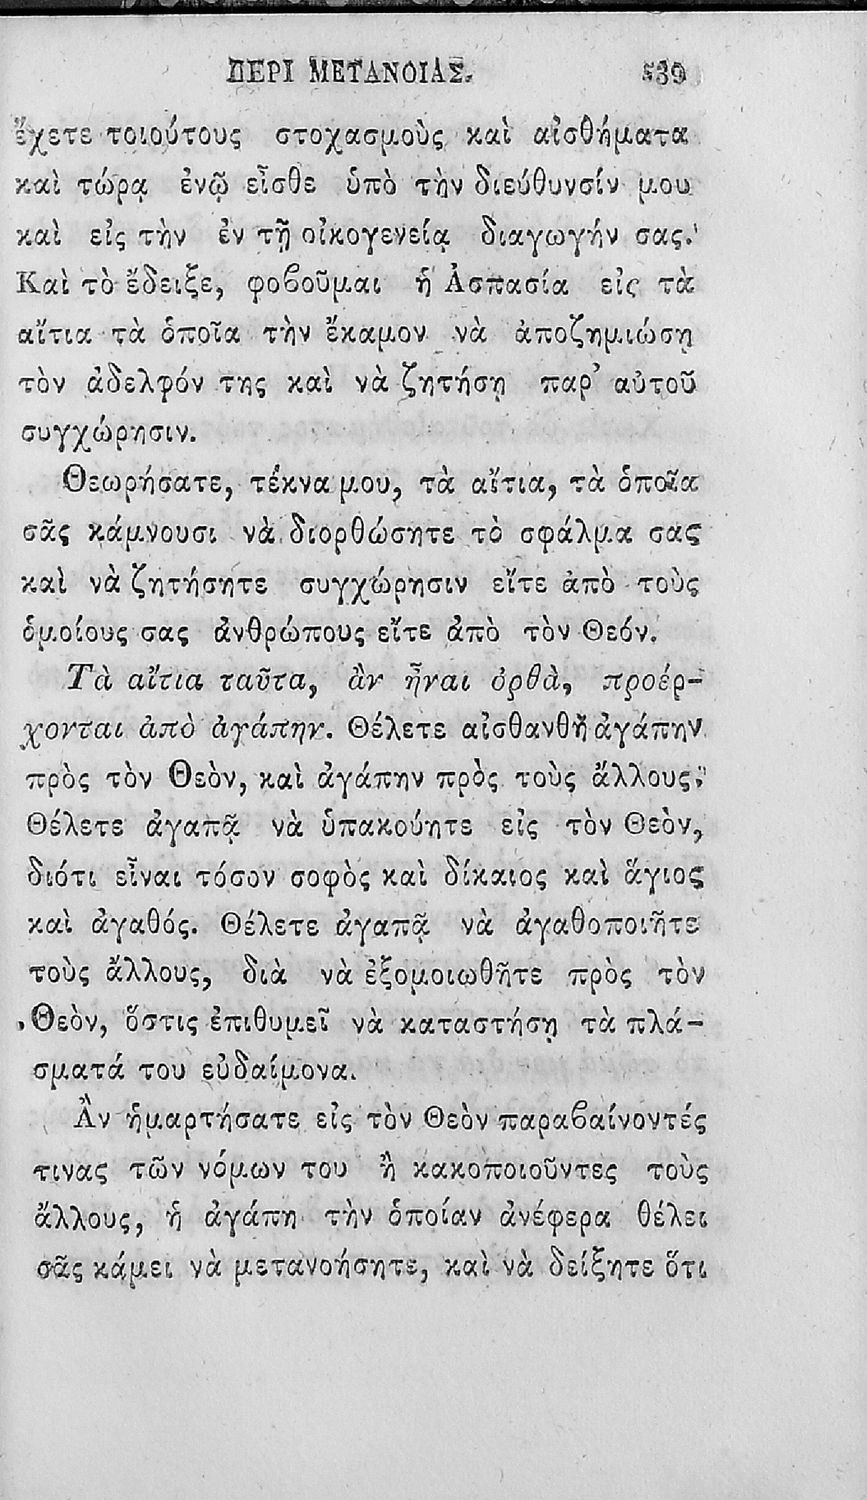 ΠΕΡΙ ΜΕΤΑΝΟΙΑΣ. 539
ἔχετε τοιούτους στοχασμοὺς καὶ αἰσθήματα
καὶ τώρᾳ ἐνῷ εἶσθε ὑπὸ τὴν διεύθυνσίν μου
καὶ εἰς τὴν ἐν τῇ οἰκογενείᾳ διαγωγήν σας.
Καὶ τὸ ἔδειξε, φοϐοῦμαι ἡ Ἀσπασία εἰς τὰ
αἴτια τὰ ὁποῖα τὴν ἔκαμον νὰ ἀποζημιώσῃ
τὸν ἀδελφόν της καὶ νὰ ζητήσῃ παρ’ αὐτοῦ
συγχώρησιν.
Θεωρήσατε, τέκνα μου, τὰ αἴτια, τὰ ὁποῖα
σᾶς κάμνουσι νὰ διορθώσητε τὸ σφάλμα σας
καὶ νὰ ζητήσητε συγχώρησιν εἴτε ἀπὸ τοὺς
ὁμοίους σας ἀνθρώπους εἴτε ἀπὸ τὸν Θεόν.
Τὰ αἴτια ταῦτα, ἂν ἦναι ὀρθὰ, προέρ-
χονται ἀπὸ ἀγάπην. Θέλετε αἰσθανθῆ ἀγάπην
πρὸς τὸν Θεὸν, καὶ ἀγάπην πρὸς τοὺς ἄλλους;
Θέλετε ἀγαπᾷ νὰ ὑπακούητε εἰς τὸν Θεὸν,
διότι εἶναι τόσον σοφὸς καὶ δίκαιος καὶ ἅγιος
καὶ ἀγαθός. Θέλετε ἀγαπᾷ νὰ ἀγαθοποιῆτε
τοὺς ἄλλους, διὰ νὰ ἐξομοιωθῆτε πρὸς τὸν
Θεὸν, ὅστις ἐπιθυμεῖ νὰ καταστήσῃ τὰ πλά-
σματά του εὐδαίμονα.
Ἂν ἡμαρτήσατε εἰς τὸν Θεὸν παραϐαίνοντές
τινας τῶν νόμων του ἢ κακοποιοῦντες τοὺς
ἄλλους, ἡ ἀγάπη τὴν ὁποίαν ἀνέφερα θέλει
σᾶς κάμει νὰ μετανοήσητε, καὶ νὰ δείξητε ὅτι